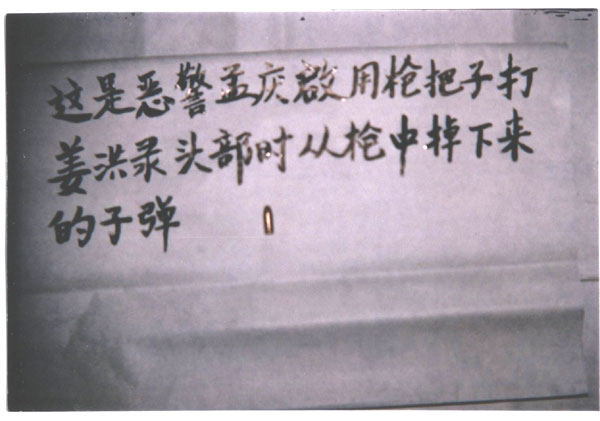 这是恶警孟庆啟用枪把子打
姜洪录头部时从枪中掉下来
的子弹